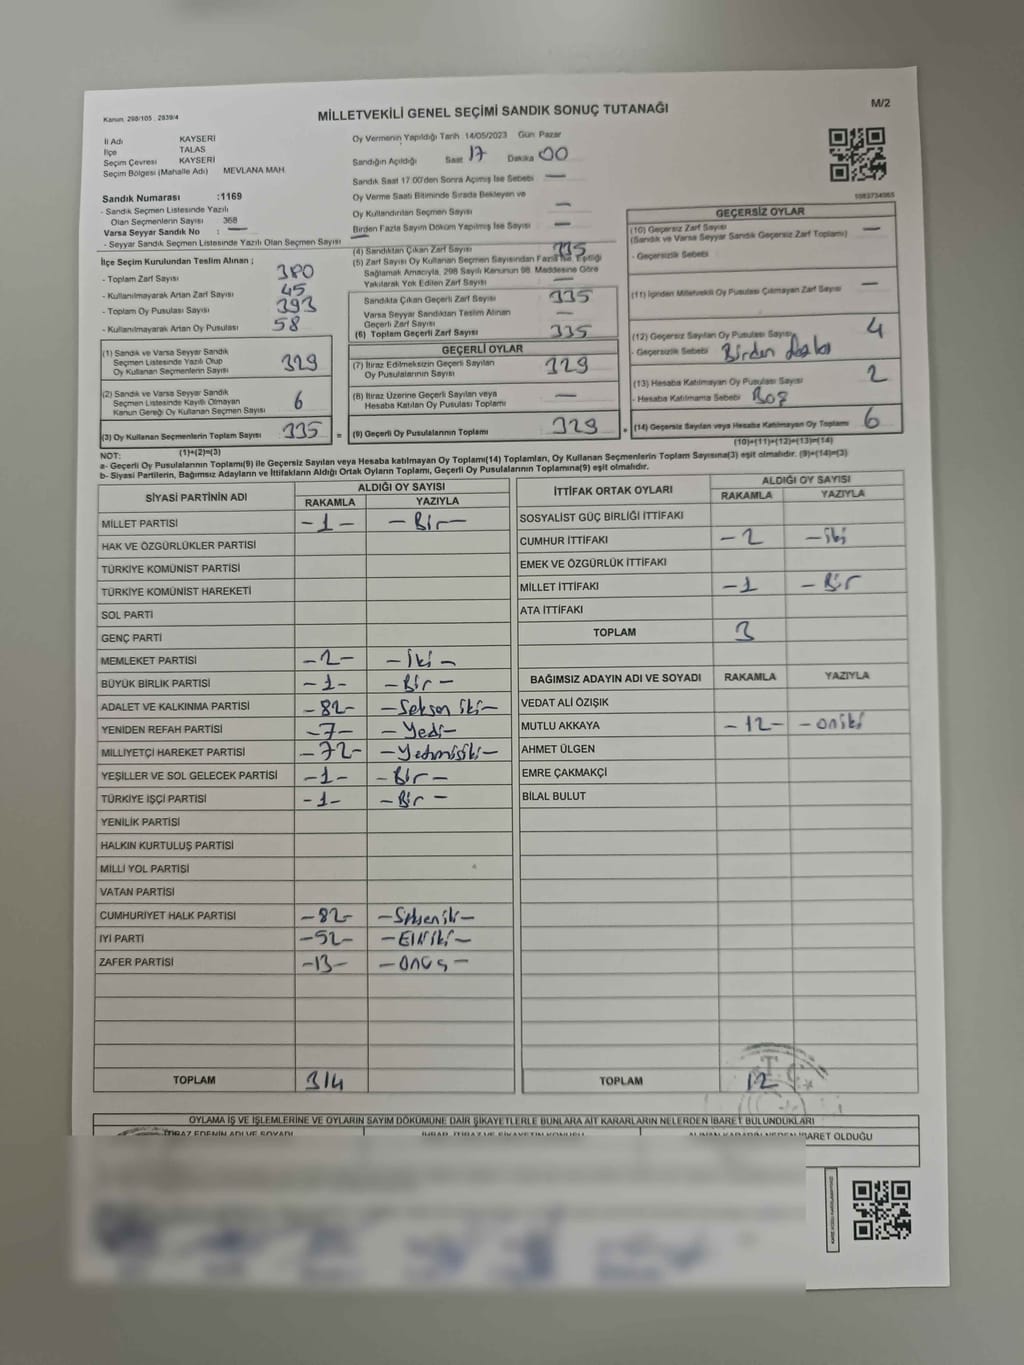 Kanun. 298/105 , 2839/4
MİLLETVEKİLİ GENEL SEÇİMİ SANDIK SONUÇ TUTANAĞI
M/2
İl Adı KAYSERİ
İlçe TALAS
Seçim Çevresi KAYSERİ
Seçim Bölgesi (Mahalle Adı) MEVLANA MAH.
Oy Vermenin Yapıldığı Tarih :14/05/2023 Gün Pazar
Sandığın Açıldığı Saat 17 Dakika 00
Sandık Saat 17.00'den Sonra Açılmış İse Sebebi —
Oy Verme Saati Bitiminde Sırada Bekleyen ve
Oy Kullandırılan Seçmen Sayısı —
Birden Fazla Sayım Döküm Yapılmış İse Sayısı —
Sandık Numarası :1169
- Sandık Seçmen Listesinde Yazılı
Olan Seçmenlerin Sayısı 368
Varsa Seyyar Sandık No : —
- Seyyar Sandık Seçmen Listesinde Yazılı Olan Seçmen Sayısı —
İlçe Seçim Kurulundan Teslim Alınan ;
- Toplam Zarf Sayısı 380
- Kullanılmayarak Artan Zarf Sayısı 45
- Toplam Oy Pusulası Sayısı 393
- Kullanılmayarak Artan Oy Pusulası 58
(1) Sandık ve Varsa Seyyar Sandık
Seçmen Listesinde Yazılı Olup
Oy Kullanan Seçmenlerin Sayısı 329
(2) Sandık ve Varsa Seyyar Sandık
Seçmen Listesinde Kayıtlı Olmayan
Kanun Gereği Oy Kullanan Seçmen Sayısı 6
(3) Oy Kullanan Seçmenlerin Toplam Sayısı 335 =
(1)+(2)=(3)
(4) Sandıktan Çıkan Zarf Sayısı 335
(5) Zarf Sayısı Oy Kullanan Seçmen Sayısından Fazla İse, Eşitliği
Sağlamak Amacıyla, 298 Sayılı Kanunun 98. Maddesine Göre
Yakılarak Yok Edilen Zarf Sayısı —
Sandıkta Çıkan Geçerli Zarf Sayısı 335
Varsa Seyyar Sandıktan Teslim Alınan
Geçerli Zarf Sayısı —
(6) Toplam Geçerli Zarf Sayısı 335
GEÇERLİ OYLAR
(7) İtiraz Edilmeksizin Geçerli Sayılan
Oy Pusulalarının Sayısı 329
(8) İtiraz Üzerine Geçerli Sayılan veya
Hesaba Katılan Oy Pusulası Toplamı —
(9) Geçerli Oy Pusulalarının Toplamı 329 +
GEÇERSİZ OYLAR
(10) Geçersiz Zarf Sayısı —
(Sandık ve Varsa Seyyar Sandık Geçersiz Zarf Toplamı)
- Geçersizlik Sebebi
(11) İçinden Milletvekili Oy Pusulası Çıkmayan Zarf Sayısı —
(12) Geçersiz Sayılan Oy Pusulası Sayısı 4
- Geçersizlik Sebebi Birden fazla
(13) Hesaba Katılmayan Oy Pusulası Sayısı 2
- Hesaba Katılmama Sebebi Boş
(14) Geçersiz Sayılan veya Hesaba Katılmayan Oy Toplamı 6
(10)+(11)+(12)+(13)=(14)
NOT:
a- Geçerli Oy Pusulalarının Toplamı(9) ile Geçersiz Sayılan veya Hesaba katılmayan Oy Toplamı(14) Toplamları, Oy Kullanan Seçmenlerin Toplam Sayısına(3) eşit olmalıdır. (9)+(14)=(3)
b- Siyasi Partilerin, Bağımsız Adayların ve İttifakların Aldığı Ortak Oyların Toplamı, Geçerli Oy Pusulalarının Toplamına(9) eşit olmalıdır.
SİYASİ PARTİNİN ADI ALDIĞI OY SAYISI
RAKAMLA YAZIYLA
MİLLET PARTİSİ -1- -Bir-
HAK VE ÖZGÜRLÜKLER PARTİSİ
TÜRKİYE KOMÜNİST PARTİSİ
TÜRKİYE KOMÜNİST HAREKETİ
SOL PARTİ
GENÇ PARTİ
MEMLEKET PARTİSİ -2- -İki-
BÜYÜK BİRLİK PARTİSİ -1- -Bir-
ADALET VE KALKINMA PARTİSİ -82- -Seksen iki-
YENİDEN REFAH PARTİSİ -7- -Yedi-
MİLLİYETÇİ HAREKET PARTİSİ -72- -Yetmişiki-
YEŞİLLER VE SOL GELECEK PARTİSİ -1- -Bir-
TÜRKİYE İŞÇİ PARTİSİ -1- -Bir-
YENİLİK PARTİSİ
HALKIN KURTULUŞ PARTİSİ
MİLLİ YOL PARTİSİ
VATAN PARTİSİ
CUMHURİYET HALK PARTİSİ -82- -Seksen iki-
İYİ PARTİ -52- -Elli iki-
ZAFER PARTİSİ -13- -onüç-
TOPLAM 314
İTTİFAK ORTAK OYLARI ALDIĞI OY SAYISI
RAKAMLA YAZIYLA
SOSYALİST GÜÇ BİRLİĞİ İTTİFAKI
CUMHUR İTTİFAKI -2 -iki
EMEK VE ÖZGÜRLÜK İTTİFAKI
MİLLET İTTİFAKI -1 -Bir
ATA İTTİFAKI
TOPLAM 3
BAĞIMSIZ ADAYIN ADI VE SOYADI RAKAMLA YAZIYLA
VEDAT ALİ ÖZIŞIK
MUTLU AKKAYA -12- -oniki
AHMET ÜLGEN
EMRE ÇAKMAKÇİ
BİLAL BULUT
TOPLAM 12
T.C.
OYLAMA İŞ VE İŞLEMLERİNE VE OYLARIN SAYIM DÖKÜMÜNE DAİR ŞİKAYETLERLE BUNLARA AİT KARARLARIN NELERDEN İBARET BULUNDUKLARI
İTİRAZ EDENİN ADI VE SOYADI